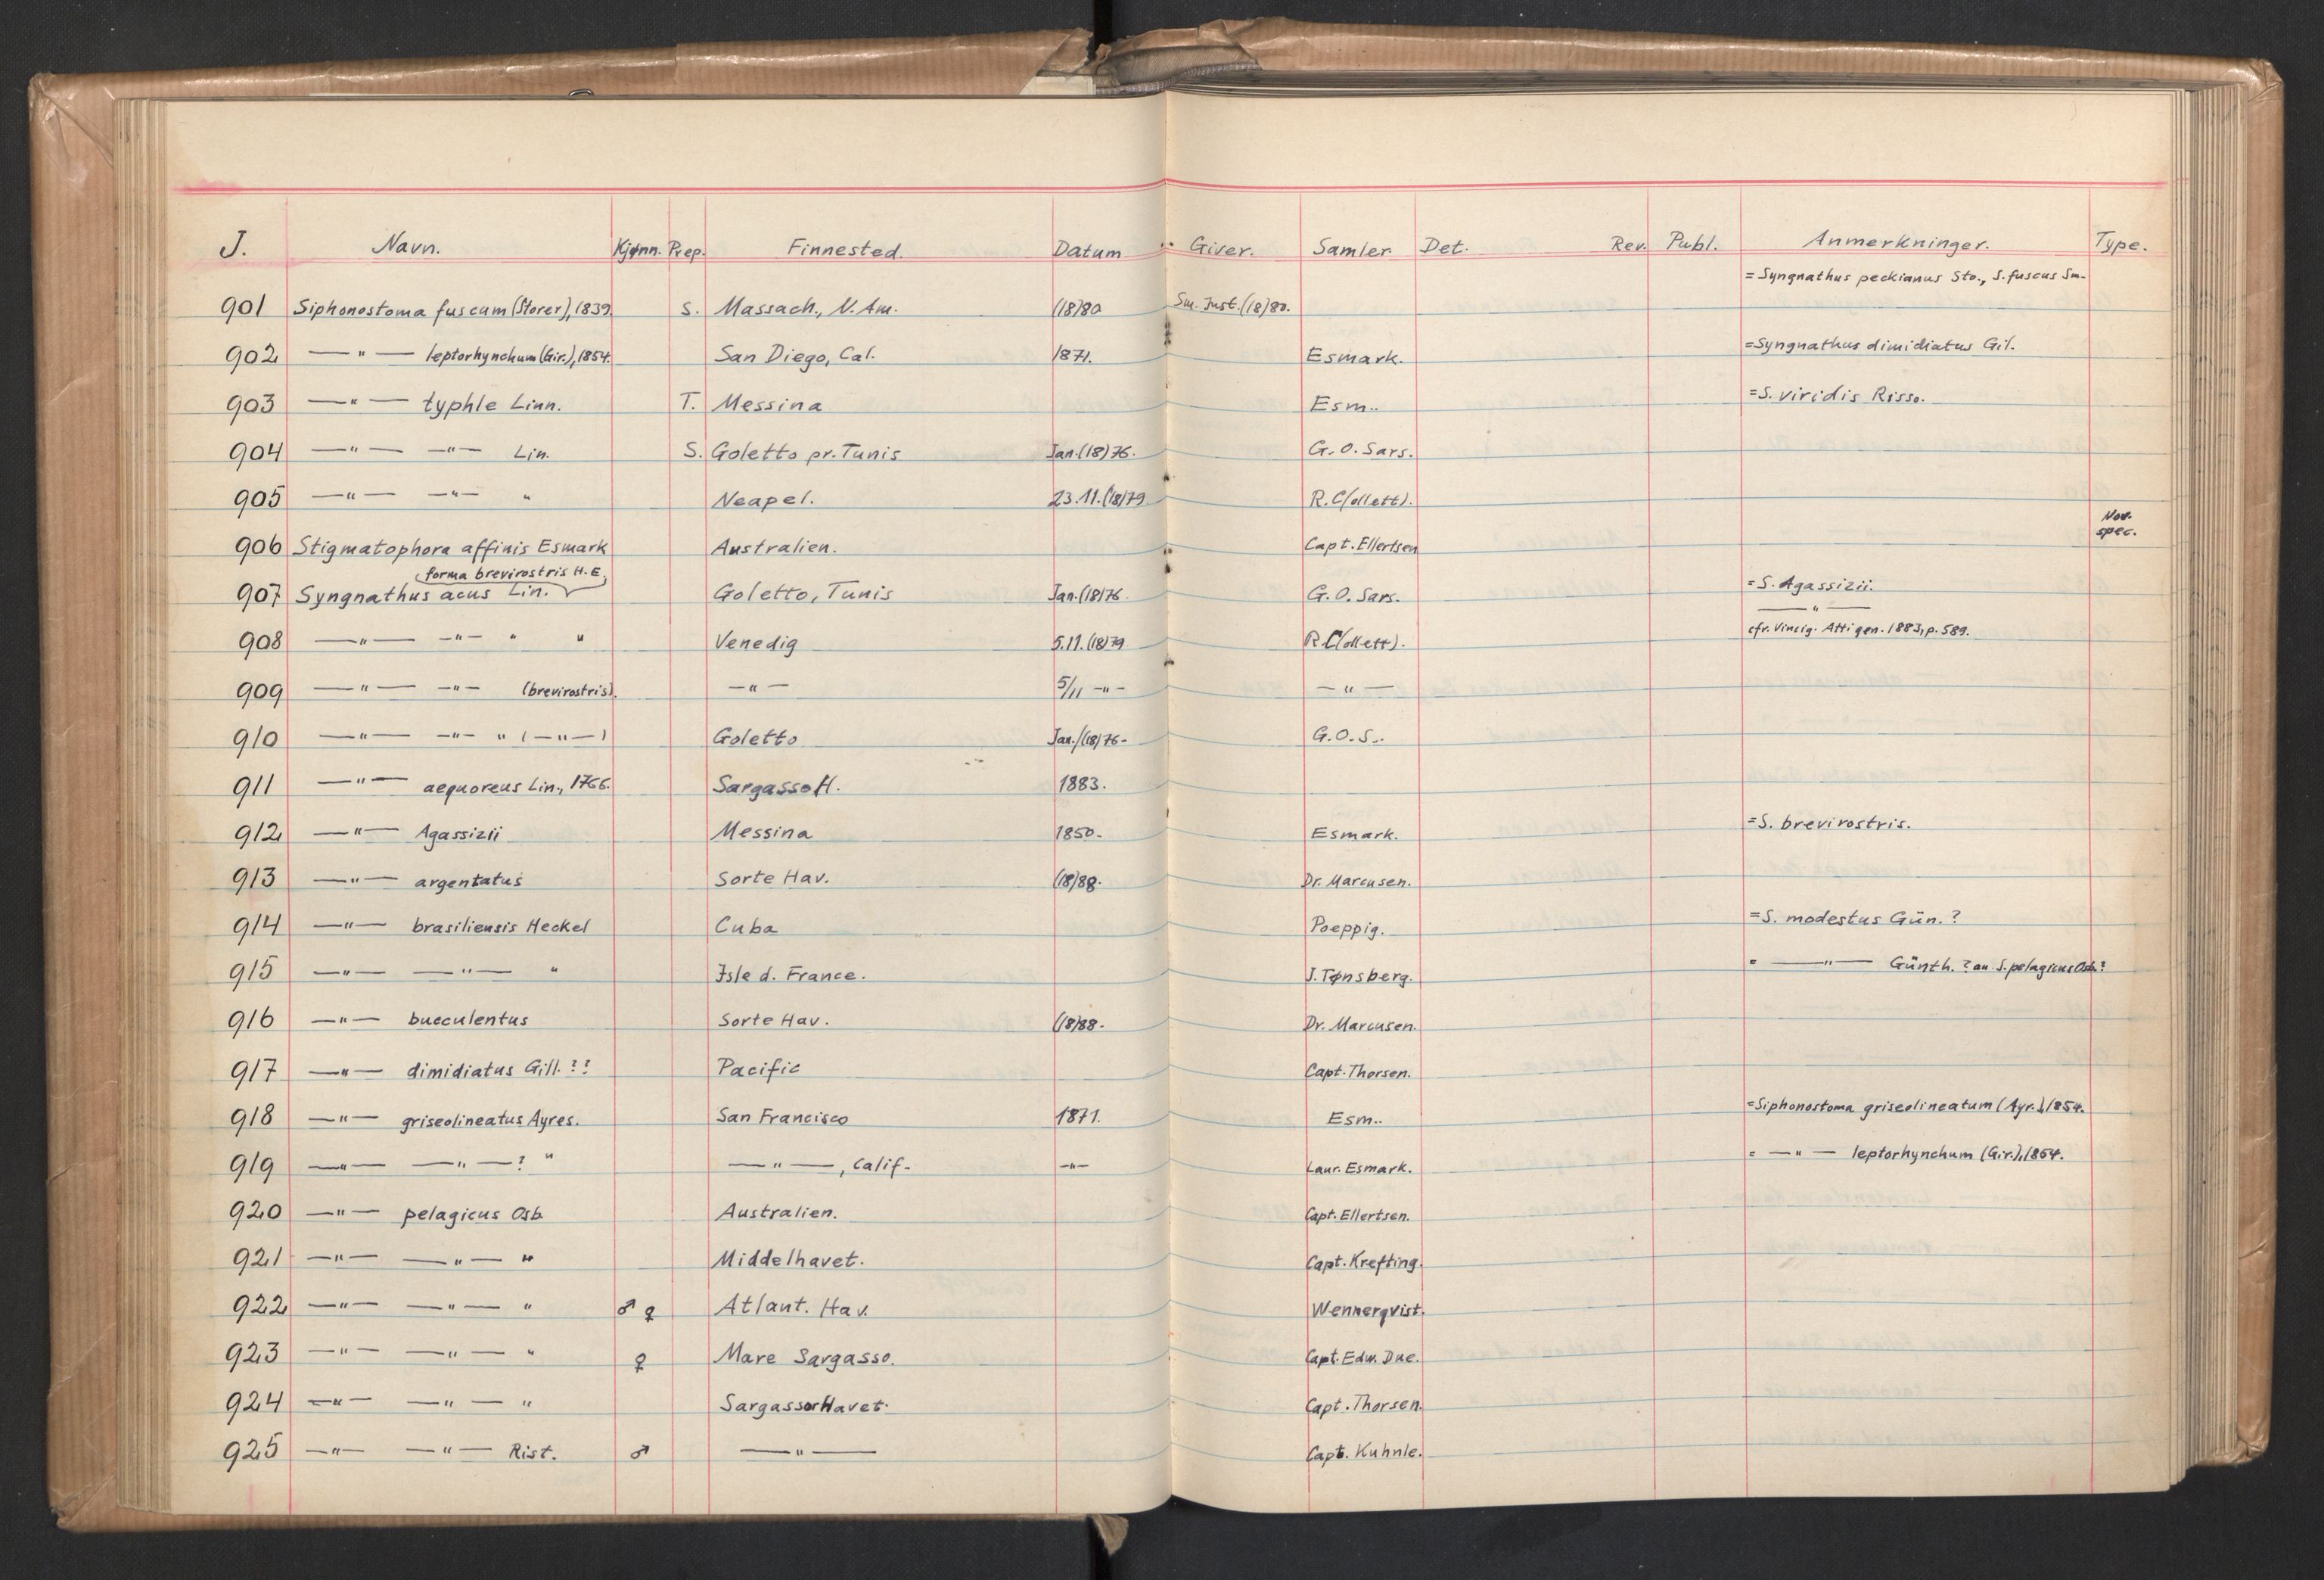 J. Navn. Kjønn. Prep. Finnested. Datum Giver. Samler Det. Rev. Publ. Anmerkninger. Type.
= Syngnathus peckianus Sto., S. fuscus Sm.
901 Siphonostoma fuscum (Storer), 1839. S. Massach., N. Am. (18)80 Sm. Inst. (18)80.
902 —"— leptorhynchum (Gir.), 1854. San Diego, Cal. 1871. Esmark. =Syngnathus dimidiatus Gil.
903 —"— typhle Linn. T. Messina Esm.. =S. viridis Risso.
904 —"— —"— Lin. S. Goletto pr. Tunis Jan. (18)76. G. O. Sars.
905 —"— —"— " Neapel. 23.11.(18)79 R. C(ollett).
906 Stigmatophora affinis Esmark Australien. Capt. Ellertsen Nov. spec.
forma brevirostris H.E.
907 Syngnathus acus Lin. Goletto, Tunis Jan. (18)76. G. O. Sars. =S. Agassizii.
—"—
908 —"— —"— " " Venedig 5.11.(18)79 R. C(ollett). cfr. Vincig. Atti gen. 1883, p. 589.
909 —"— —"— (brevirostris). —"— 5/11 —"— —"—
910 —"— —"— " (—"—) Goletto Jan./(18)76- G. O. S..
911 —"— aequoreus Lin., 1766. Sargasso H. 1883.
912 —"— Agassizii Messina 1850- Esmark. =S. brevirostris.
913 —"— argentatus Sorte Hav. (18)88. Dr. Marcusen.
914 —"— brasiliensis Heckel Cuba Poeppig. =S. modestus Gün. ?
915 —"— —"— " Isle d. France. J. Tønsberg. = —"— Günth. ? an S. pelagicus Osb. ?
916 —"— bucculentus Sorte Hav. (18)88. Dr. Marcusen.
917 —"— dimidiatus Gill. ?? Pacific Capt. Thorsen.
918 —"— griseolineatus Ayres. San Francisco 1871. Esm.. =Siphonostoma griseolineatum (Ayr.), 1854.
919 —"— —"— ? " —"—, Calif- —"— Laur. Esmark. = —"— leptorhynchum (Gir.), 1854.
920 —"— pelagicus Osb. Australien. Capt. Ellertsen.
921 —"— —"— " Middelhavet. Capt. Krefting.
922 —"— —"— " ♂ ♀ Atlant. Hav. Wennerqvist.
923 —"— —"— " ♀ Mare Sargasso. Capt. Edw. Due.
924 —"— —"— " Sargasso Havet. Capt. Thorsen.
925 —"— —"— Rist. ♂ —"— Capt. Kuhnle.